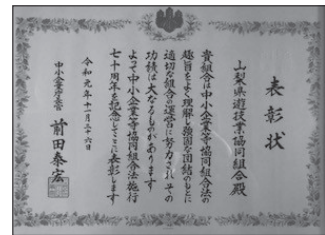 表彰状
山梨県遊技業協同組合殿
貴組合は中小企業等協同組合法の
趣旨をよく理解し強固な団結のもとに
適切な組合の運営に努力されその
功績は大なるものがあります
よって中小企業等協同組合法施行
七十周年を記念してここに表彰します
令和元年十一月二十六日
中小企業庁長官
前田泰宏